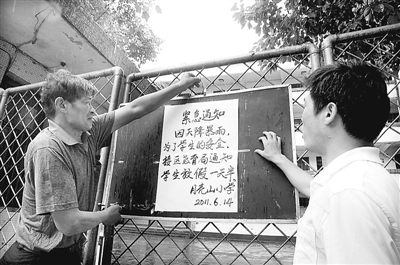 紧急通知
因天降暴雨,
为了学生的安全,
接区教育局通知
学生放假一天半。
月亮山小学
2011.6.14